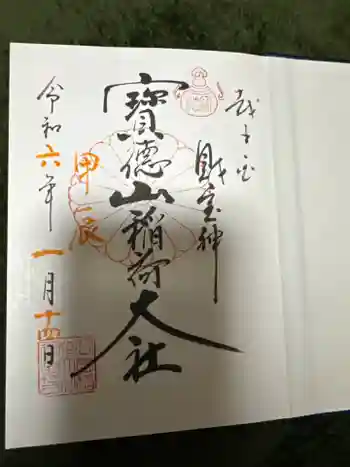 財宝神
寳德山稲荷大社
甲辰
令和六年一月十四日